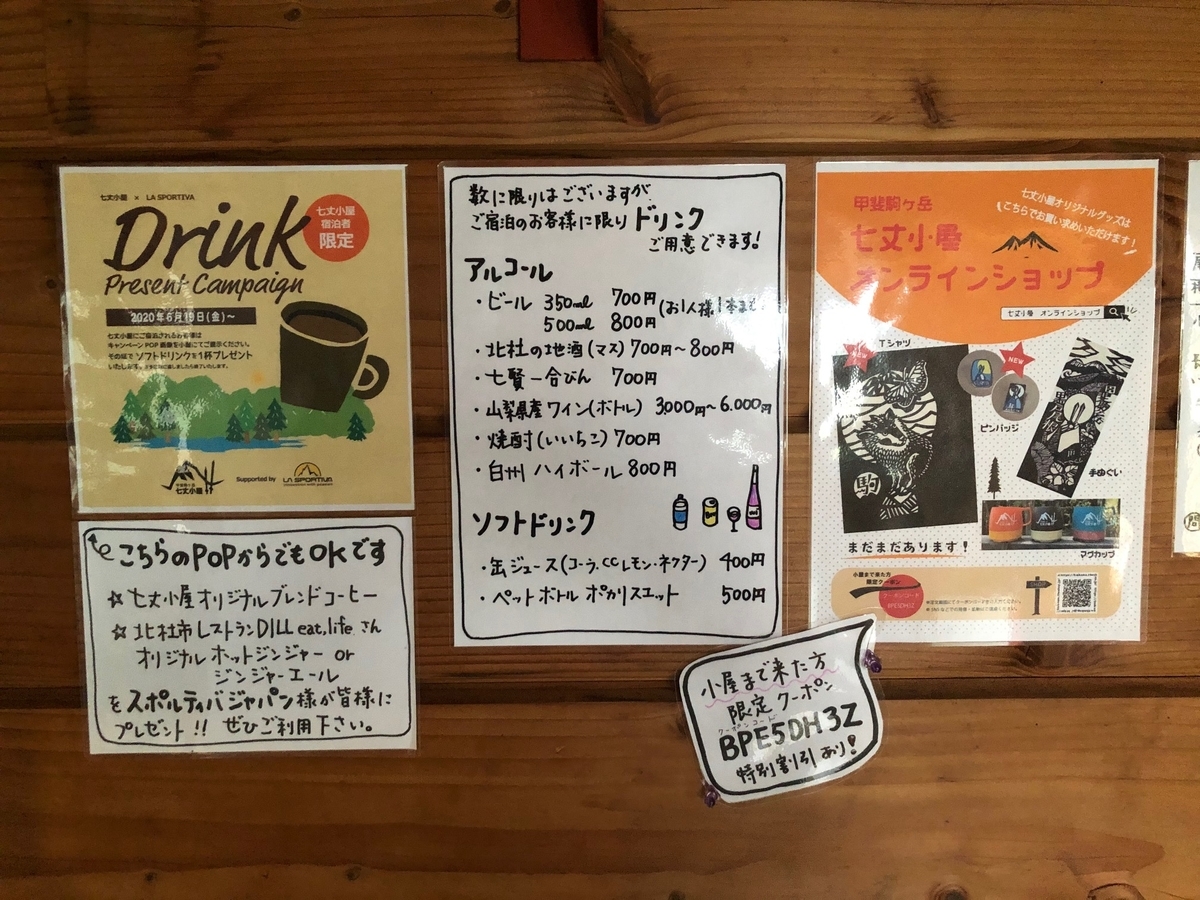 七丈小屋 × LA SPORTIVA
Drink
Present Campaign
七丈小屋
宿泊者
限定
2020年6月19日(金)～
七丈小屋にご宿泊されるお客様は
キャンペーンPOP画像を小屋にてご提示ください。
その場で ソフトドリンクを1杯プレゼント
いたします。
甲斐駒ヶ岳
七丈小屋
Supported by
LA SPORTIVA
こちらのPOPからでもOKです
☆七丈小屋オリジナルブレンドコーヒー
☆北杜市レストランDILL eat,life さん
オリジナルホットジンジャー or
ジンジャーエール
をスポルティバジャパン様が皆様に
プレゼント!! ぜひご利用下さい。
数に限りはございますが
ご宿泊のお客様に限り ドリンク
ご用意できます!
アルコール
・ビール 350ml 700円 (お1人様1本まで
500ml 800円
・北杜の地酒(マス) 700円～800円
・七賢一合びん 700円
・山梨県産ワイン(ボトル) 3000円～6.000円
・焼酎(いいちこ) 700円
・白州 ハイボール 800円
ソフトドリンク
・缶ジュース(コーラ.CCレモン・ネクター) 400円
・ペットボトル ポカリスエット 500円
小屋まで来た方
限定クーポン
クーポンコード
BPE5DH3Z
特別割引あり!
七丈小屋オリジナルグッズは
こちらでお買い求めいただけます!
甲斐駒ヶ岳
七丈小屋
オンラインショップ
七丈小屋 オンラインショップ
Tシャツ
NEW
NEW
ピンバッジ
駒
手ぬぐい
まだまだあります!
マグカップ
小屋まで来た方
限定クーポン
クーポンコード
BPE5DH3Z